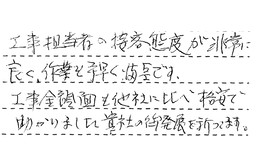 工事担当者の接客態度が非常に
良く、作業も手早く満足です。
工事金額面も他社に比べ格安で
助かりました。貴社の御発展を祈ってます。